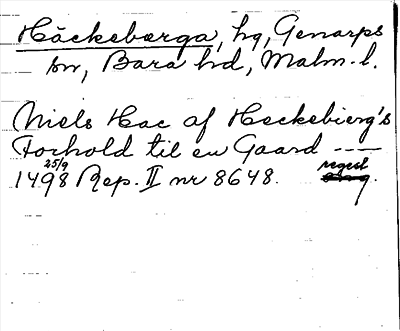 Häckeberga, hg, Genarps
sn, Bara hd, Malm. l.
Niels Hac af Heckebierg's
Forhold til en Gaard ----
25/9 regest
1498 Rep. II nr 8648.